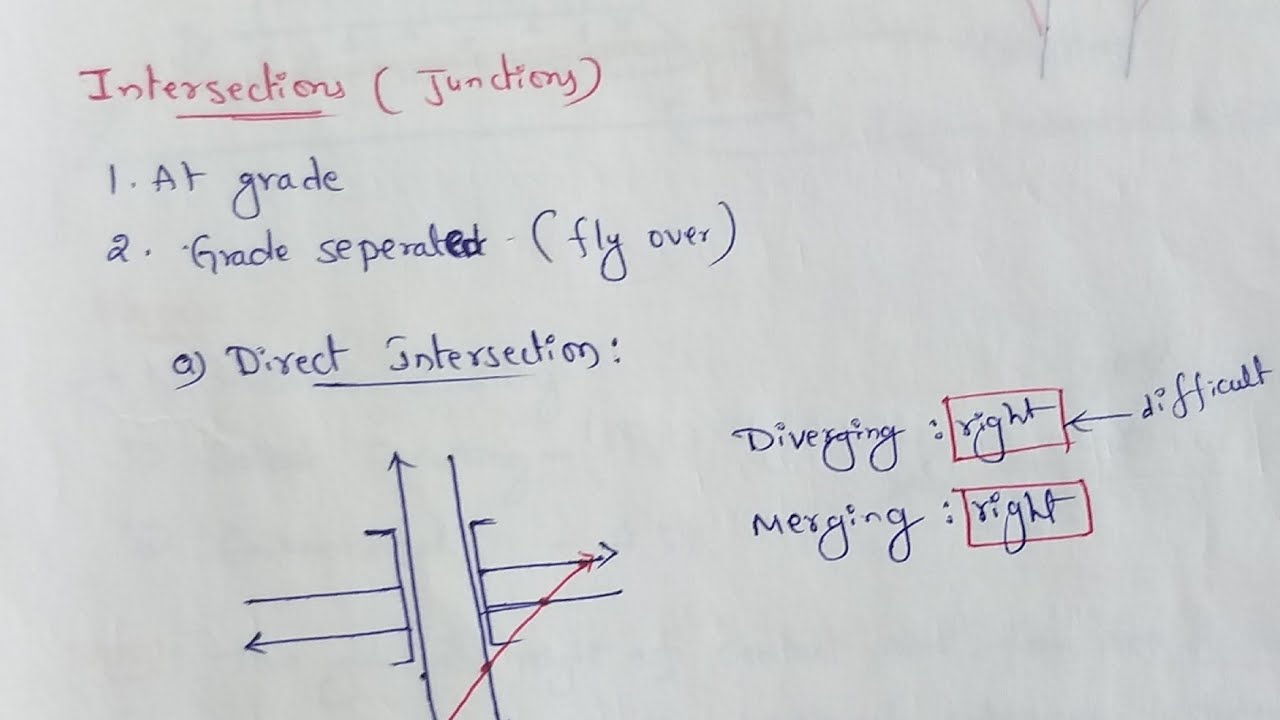 Intersections (Junctions)
1. At grade
2. Grade seperated - (fly over)
a) Direct Intersection:
Diverging : right ← difficult
Merging : right